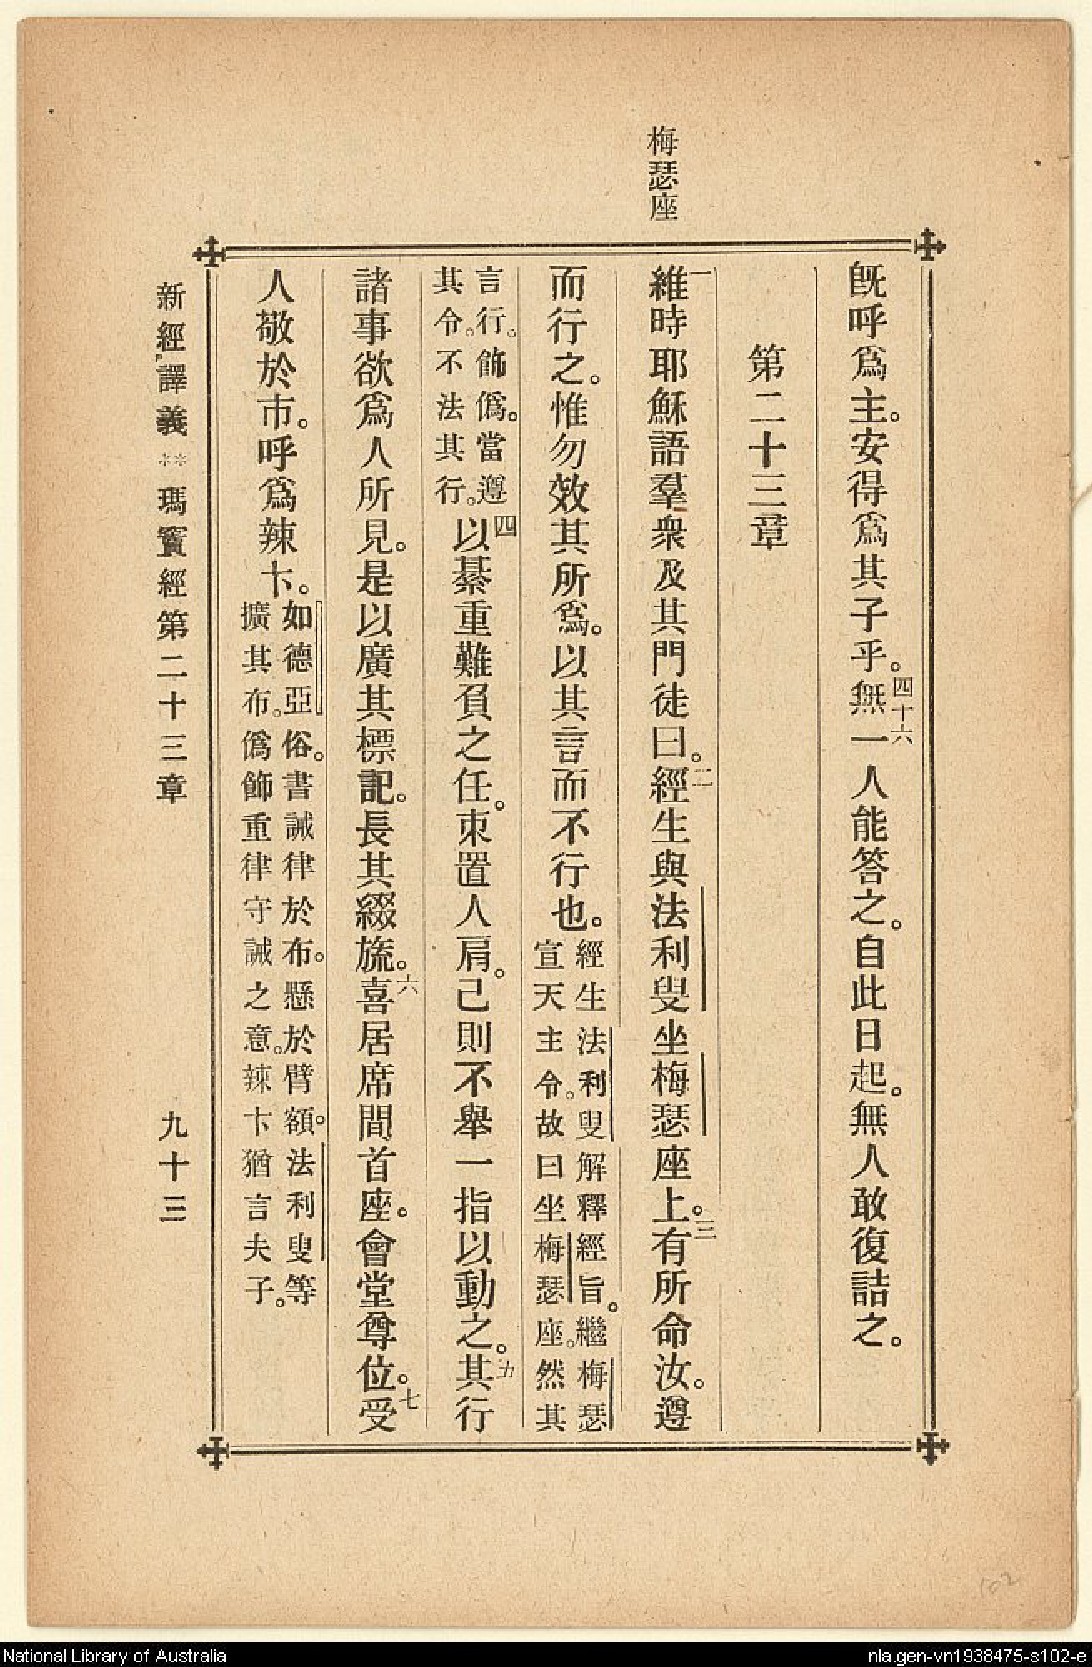 梅瑟座
既呼爲主。安得爲其子乎。四十六無一人能答之。自此日起。無人敢復詰之。
第二十三章
一維時耶穌語羣衆及其門徒曰。二經生與法利叟坐梅瑟座上。三有所命汝。遵
而行之。惟勿效其所爲。以其言而不行也。經生法利叟解釋經旨。繼梅瑟
宣天主令。故曰坐梅瑟座。然其
言行。飾僞。當遵
其令。不法其行。四以綦重難負之任。束置人肩。己則不舉一指以動之。五其行
諸事欲爲人所見。是以廣其標記。長其綴旒。六喜居席間首座。會堂尊位。七受
人敬於市。呼爲辣卞。如德亞俗。書誡律於布。懸於臂額。法利叟等
擴其布。僞飾重律守誡之意。辣卞猶言夫子。
新經譯義 瑪竇經第二十三章 九十三
102
National Library of Australia
nla.gen-vn1938475-s102-e